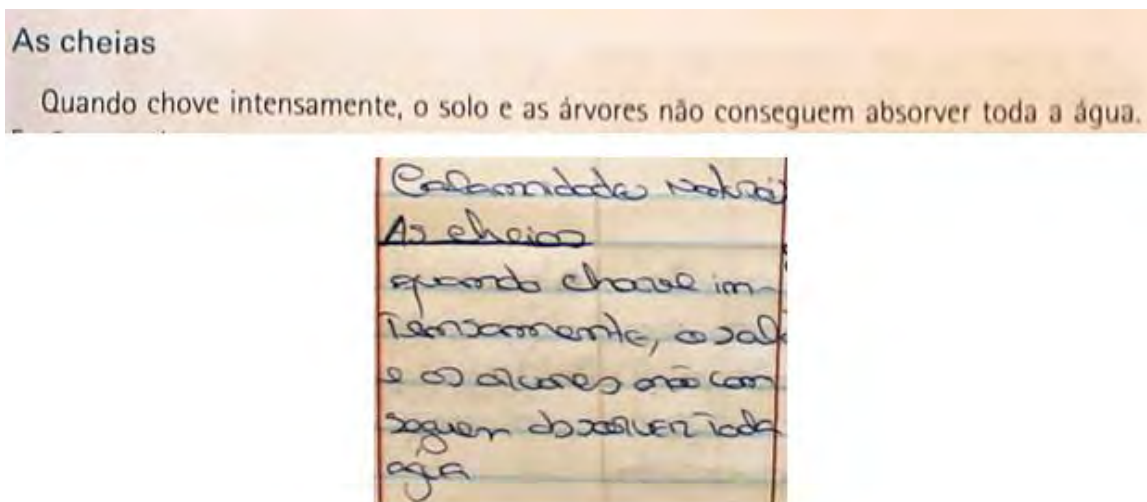 As cheias
Quando chove intensamente, o solo e as árvores não conseguem absorver toda a água.
As cheias
quando chove in-
tensamente, o sol
e as arvores não con
seguem absorver toda
agua